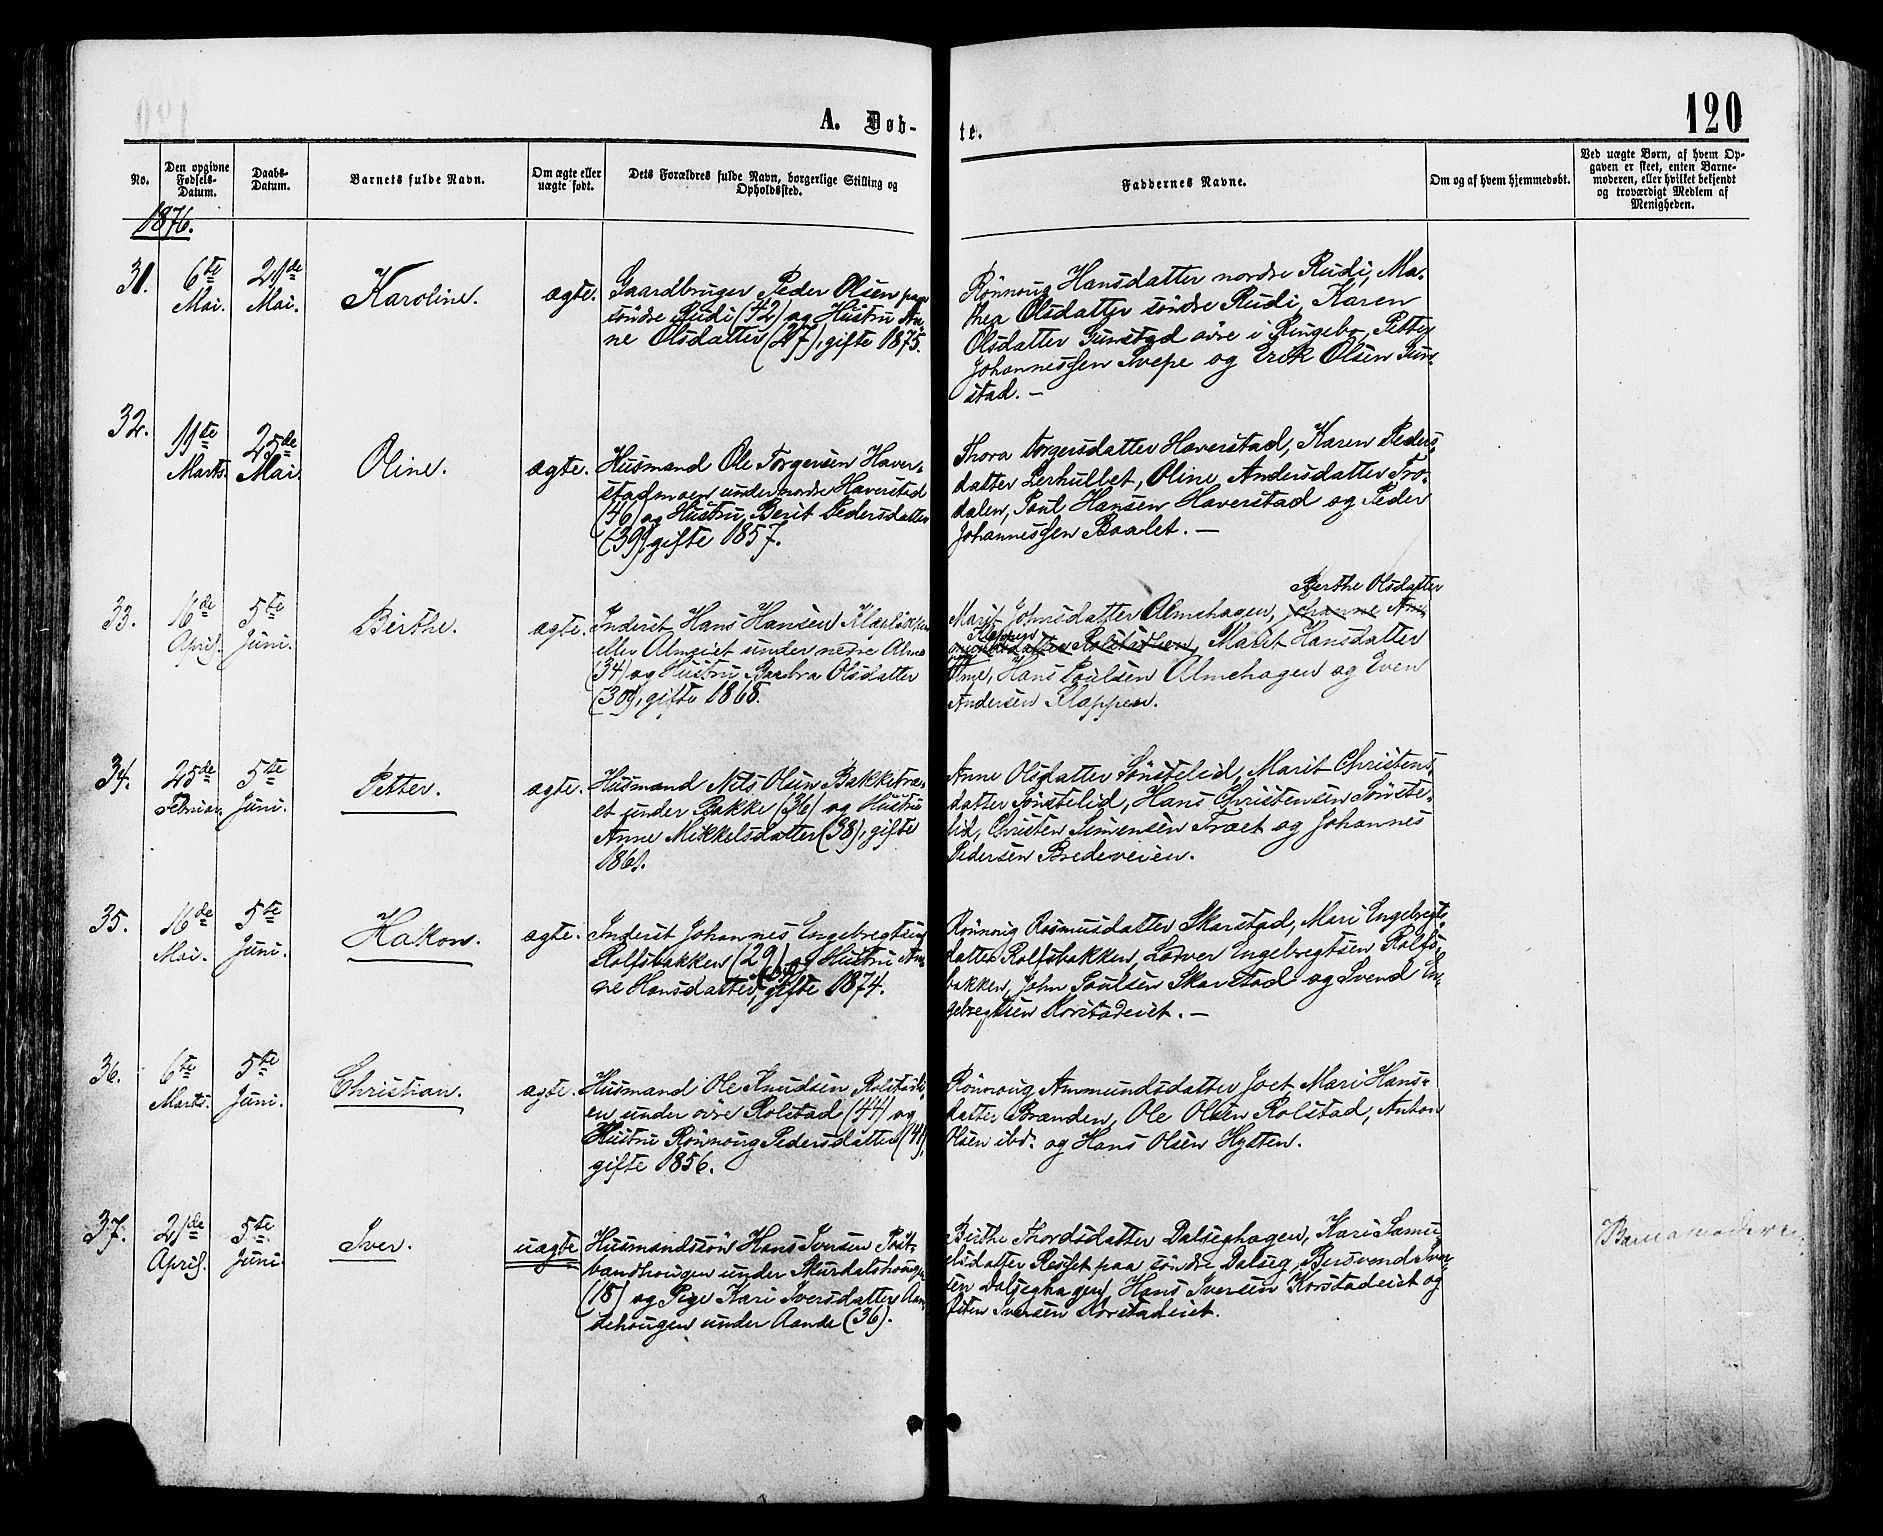 120
A. Døb-
te.
No.
Den opgivne Fødsels-Datum.
Daabs-Datum.
Barnets fulde Navn.
Om ægte eller uægte født.
Dets Forældres fulde Navn, borgerlige Stilling og Opholdssted.
Faddernes Navne.
Om og af hvem hjemmedøbt.
Ved uægte Børn, af hvem Op-
gaven er skeet, enten Barne-
moderen, eller hvilket bekjendt
og troværdigt Medlem af
Menigheden.
1876.
31.
6te Mai.
21de Mai.
Karoline.
ægte.
Gaardbruger Peder Olsen paa
søndre Rudi (42) og Hustru An-
ne Olsdatter (27), gifte 1875.
Rønnoug Hansdatter nordre Rudi, Ma-
thea Olsdatter søndre Rudi, Karen
Olsdatter Gunstad øvre i Ringebo, Petter
Johannessen Svepe og Erik Olsen Gun-
stad. —
32.
11te Marts.
25de Mai.
Oline.
ægte.
Husmand Ole Torgersen Haver-
stadmoen under nordre Haverstad
(46) og Hustru Berit Pedersdatter
(39), gifte 1857.
Thora Torgersdatter Haverstad, Karen Peders-
datter Lerhullet, Oline Andersdatter Tro-
dalen, Poul Hansen Haverstad og Peder
Johannessen Baalet. —
33.
16de April.
5te Juni.
Birthe.
ægte.
Inderst Hans Hansen Klæpløkken
eller Olmeiet under nedre Olme
(34) og Hustru Barbra Olsdatter
(30), gifte 1868.
Berthe Olsdatter
Marit Johnsdatter Olmehagen, Johanne
Klappen
Rolstadlien, Marit Hansdatter
Olme, Hans Poulsen Olmehagen og Even
Andersen Klappen.
34.
25de Februar.
5te Juni.
Petter.
ægte.
Husmand Nils Olsen Bakketræ-
et under Bakke (36) og Hustru
Anne Mikkelsdatter (38), gifte
1861.
Anne Olsdatter Sønstelid, Marit Christens-
datter Sønstelid, Hans Christensen Sønste-
lid, Christen Simensen Træet og Johannes
Pedersen Bredeveien.
35.
16de Mai.
5te Juni.
Hakon.
ægte.
Inderst Johannes Engebregtsen
Rolfsbakken (29) og Hustru An-
ne Hansdatter, gifte 1874.
Rønnoug Rasmusdatter Skarstad, Mari Engebregts-
datter Rolfsbakken, Laver Engebregtsen Rolfs-
bakken, John Poulsen Skarstad og Svend En-
gebregtsen Korstadeiet. —
36.
6te Marts.
5te Juni.
Christian.
ægte.
Husmand Ole Knudsen Rolstadli-
en under øvre Rolstad (44) og
Hustru Rønnoug Pedersdatter (41),
gifte 1856.
Rønnoug Ammundsdatter Joet, Mari Hans-
datter Brænden, Ole Olsen Rolstad, Anton
Olsen ibd. og Hans Olsen Hytten.
37.
21de April.
5te Juni.
Iver.
uægte
Husmandssøn Hans Iversen Post-
bandhougen under Skurdalshougen
(18) og Pige Kari Iversdatter Aan-
dehougen under Aande (36).
Birthe Thordsdatter Dalseghagen, Kari Samu-
elsdatter Resset paa søndre Dalseg, Bersvend Iver-
sen Dalseghagen, Hans Iversen Korstadeiet og
Østen Iversen Korstadeiet.
Barnemoderen.